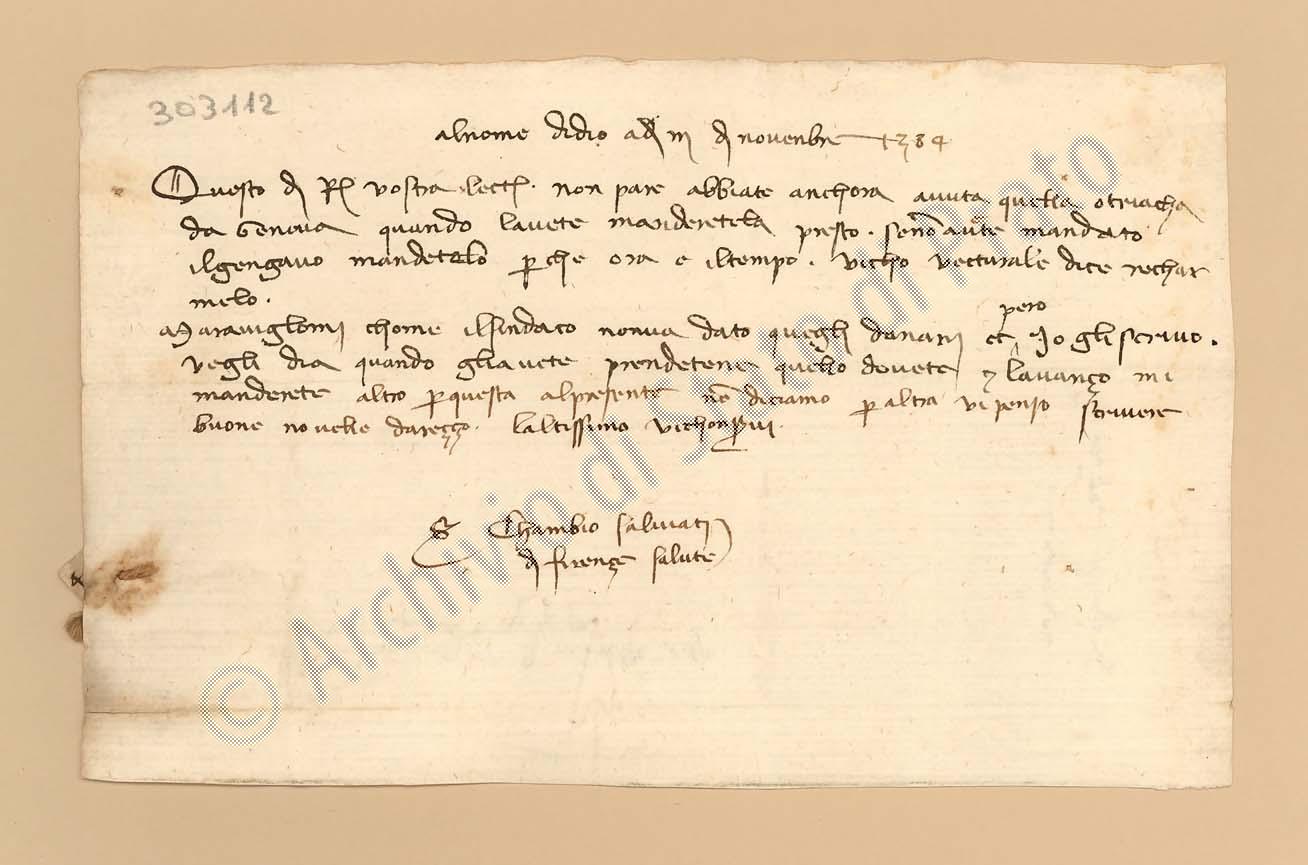 303112
al nome didio adi iii di novenbre 1384
Questo di R vostra lect. non pare abbiate anchora avuta quella otriacha
da Genova quando lavete manderetela presto. se no avete mandato
il gengavo mandetelo perche ora e il tempo. Vicho vecturale dice rechar
melo.
Maravigliomi chome il sindaco nonva dato quegli danari et però Io gli scrivo.
vegli dia quando gli avete prendetene quello dovete e lavanço mi
manderete altro per questa al presente non diciamo per altra vi penso scrivere
buone novelle dareçço. laltissimo vi chonservi.
Chambio salviati
di firençe salute
© Archivio di Stato di Prato